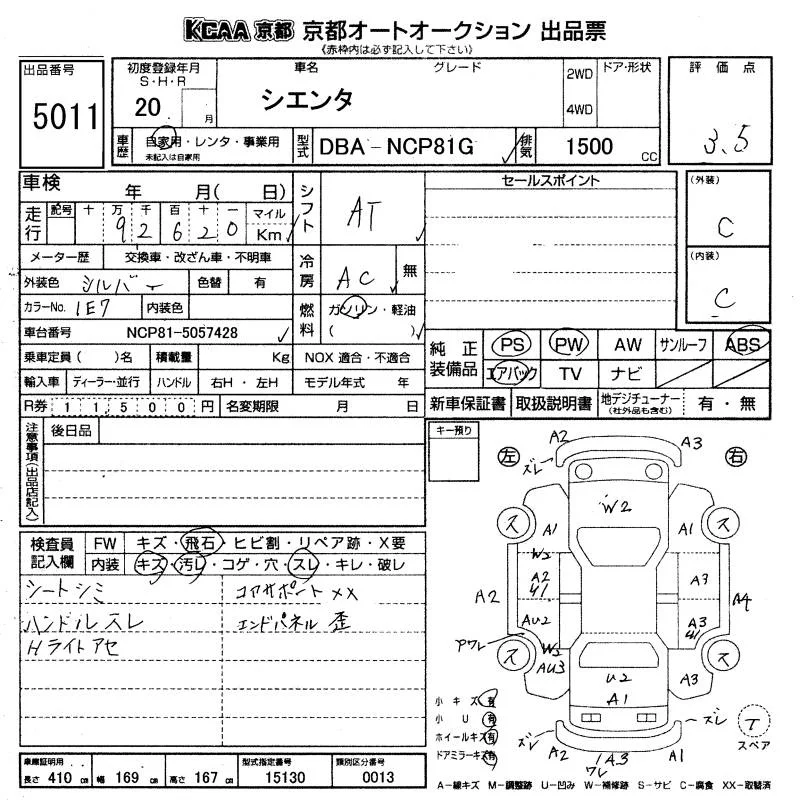 KCAA 京都 京都オートオークション 出品票
《赤枠内は必ず記入して下さい》
出品番号
5011
初度登録年月
S・H・R
20 月
車名
シエンタ
グレード
2WD
4WD
ドア・形状
評価点
3.5
車歴
自家用・レンタ・事業用
未記入は自家用
型式
DBA-NCP81G
排気
1500 CC
車検 年 月( 日)
走行
記号 十 万 千 百 十 一 マイル
9 2 6 2 0 Km
シフト
AT
セールスポイント
(外装)
C
(内装)
C
メーター歴 交換車・改ざん車・不明車
外装色 シルバー 色替 有
冷房
AC
無
カラーNo. 1E7 内装色
燃料
ガソリン・軽油
( )
車台番号 NCP81-5057428
乗車定員( )名 積載量 Kg NOX 適合・不適合
輸入車 ディーラー・並行 ハンドル 右H・左H モデル年式 年
R券 11500円 名変期限 月 日
純正装備品
PS PW AW サンルーフ ABS
エアバック TV ナビ
新車保証書 取扱説明書 地デジチューナー(社外品も含む) 有・無
注意事項(出品店記入)
後日品
キー預り
検査員記入欄
FW キズ・飛石・ヒビ割・リペア跡・X要
内装 キズ・汚レ・コゲ・穴・スレ・キレ・破レ
シートシミ コアサポート XX
ハンドルスレ エンドパネル 歪
Hライトアセ
左 右
A2 A3
ズレ
W2
ス ス
A1 A1
W2
A2 A2 U1 A3 A4
AU2 A3 U1
Pワレ W2
ス AU3 ス
U2 A3
A1
小キズ 有
小U 有
ホイールキズ 有
ドアミラーキズ 有
ズレ ズレ
A2 A3 A1
ワレ
T
スペア
車庫証明用
長さ 410 cm 幅 169 cm 高さ 167 cm
型式指定番号
15130
類別区分番号
0013
A-線キズ M-調整跡 U-凹み W-補修跡 S-サビ C-腐食 XX-取替済